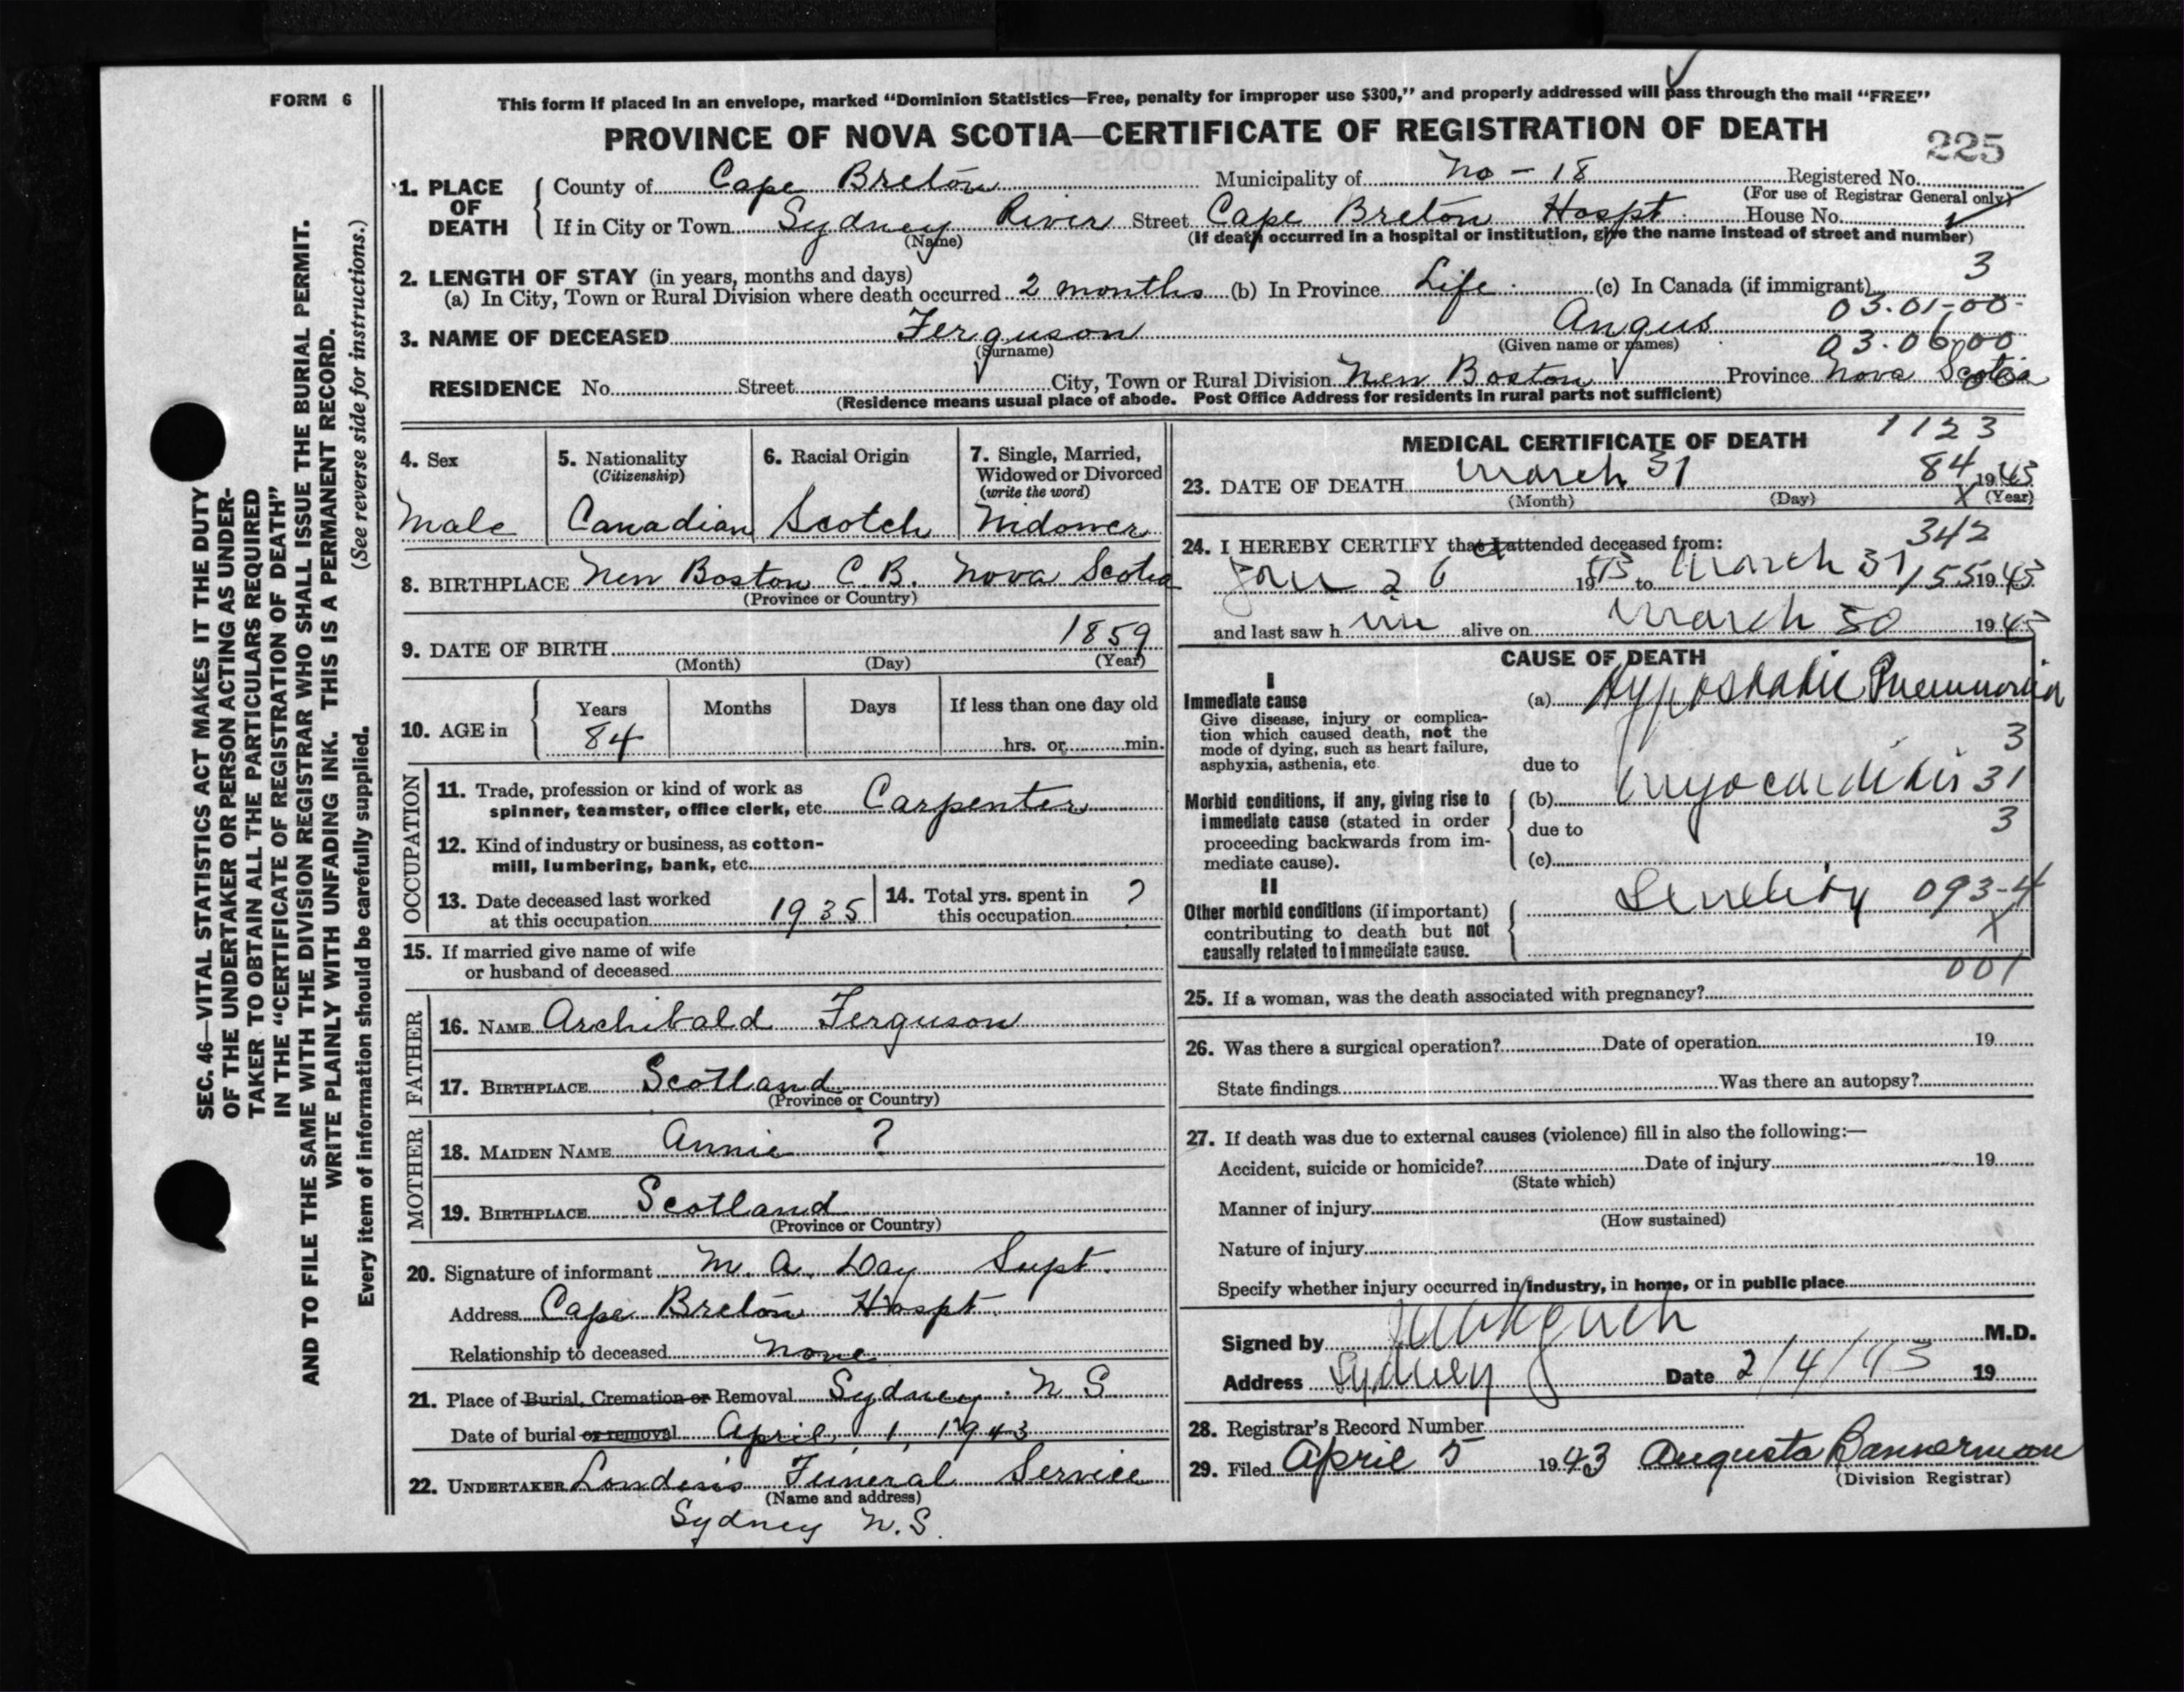 FORM 6
This form if placed in an envelope, marked “Dominion Statistics—Free, penalty for improper use $300,” and properly addressed will pass through the mail “FREE”
PROVINCE OF NOVA SCOTIA—CERTIFICATE OF REGISTRATION OF DEATH
225
1. PLACE OF DEATH
County of Cape Breton Municipality of No - 18 Registered No.
(For use of Registrar General only)
If in City or Town Sydney River Street Cape Breton Hospt. House No.
(Name) (If death occurred in a hospital or institution, give the name instead of street and number)
2. LENGTH OF STAY (in years, months and days) 3
(a) In City, Town or Rural Division where death occurred 2 months (b) In Province Life (c) In Canada (if immigrant)
03.01-00-
3. NAME OF DECEASED Ferguson Angus
(Surname) (Given name or names) 03.06.00
RESIDENCE No. Street City, Town or Rural Division New Boston Province Nova Scotia
(Residence means usual place of abode. Post Office Address for residents in rural parts not sufficient)
4. Sex
Male
5. Nationality
(Citizenship)
Canadian
6. Racial Origin
Scotch
7. Single, Married,
Widowed or Divorced
(write the word)
Widower
8. BIRTHPLACE New Boston C.B. Nova Scotia
(Province or Country)
9. DATE OF BIRTH 1859
(Month) (Day) (Year)
10. AGE in
Years Months Days If less than one day old
84 hrs. or min.
OCCUPATION
11. Trade, profession or kind of work as
spinner, teamster, office clerk, etc. Carpenter
12. Kind of industry or business, as cotton-
mill, lumbering, bank, etc.
13. Date deceased last worked
at this occupation 1935
14. Total yrs. spent in
this occupation ?
15. If married give name of wife
or husband of deceased
FATHER
16. NAME Archibald Ferguson
17. BIRTHPLACE Scotland
(Province or Country)
MOTHER
18. MAIDEN NAME Annie ?
19. BIRTHPLACE Scotland
(Province or Country)
20. Signature of informant M. A. Day Supt.
Address Cape Breton Hospt.
Relationship to deceased None
21. Place of Burial, Cremation or Removal Sydney. N S
Date of burial or removal April, 1, 1943
22. UNDERTAKER Funeral Service
(Name and address)
Sydney N.S.
MEDICAL CERTIFICATE OF DEATH 1123
23. DATE OF DEATH March 31 84 1943
(Month) (Day) X (Year)
24. I HEREBY CERTIFY that I attended deceased from: 342
Jan 26 1943 to March 31 155 1943
and last saw him alive on March 30 1943
CAUSE OF DEATH
I
Immediate cause
Give disease, injury or complica-
tion which caused death, not the
mode of dying, such as heart failure,
asphyxia, asthenia, etc.
(a) Hypostatic Pneumonia
3
due to
Morbid conditions, if any, giving rise to
immediate cause (stated in order
proceeding backwards from im-
mediate cause).
(b) Myocarditis 31
due to 3
(c)
II
Other morbid conditions (if important)
contributing to death but not
causally related to immediate cause.
Senility 093-4
X
001
25. If a woman, was the death associated with pregnancy?
26. Was there a surgical operation? Date of operation 19
State findings Was there an autopsy?
27. If death was due to external causes (violence) fill in also the following:—
Accident, suicide or homicide? Date of injury 19
(State which)
Manner of injury
(How sustained)
Nature of injury
Specify whether injury occurred in industry, in home, or in public place
Signed by M.D.
Address Sydney Date 2/4/43 19
28. Registrar's Record Number
29. Filed April 5 1943 Augusta Bannerman
(Division Registrar)
SEC. 46—VITAL STATISTICS ACT MAKES IT THE DUTY
OF THE UNDERTAKER OR PERSON ACTING AS UNDER-
TAKER TO OBTAIN ALL THE PARTICULARS REQUIRED
IN THE “CERTIFICATE OF REGISTRATION OF DEATH”
AND TO FILE THE SAME WITH THE DIVISION REGISTRAR WHO SHALL ISSUE THE BURIAL PERMIT.
WRITE PLAINLY WITH UNFADING INK. THIS IS A PERMANENT RECORD.
Every item of information should be carefully supplied. (See reverse side for instructions.)